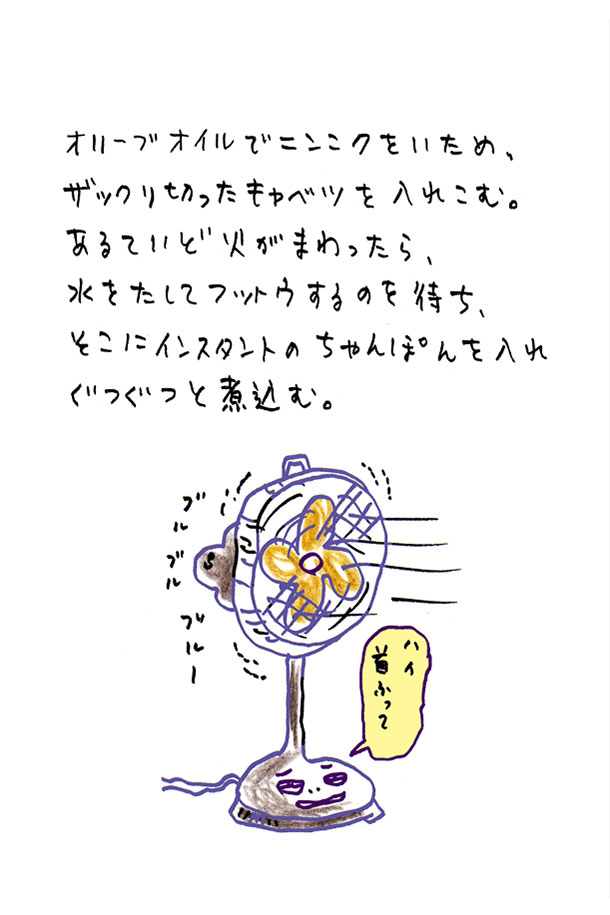 オリーブオイルでニンニクをいため、
ザックリ切ったキャベツを入れこむ。
あるていど火がまわったら、
水をたしてフットウするのを待ち、
そこにインスタントのちゃんぽんを入れ
ぐつぐつと煮込む。
ブル
ブル
ブルー
ハイ
首ふって